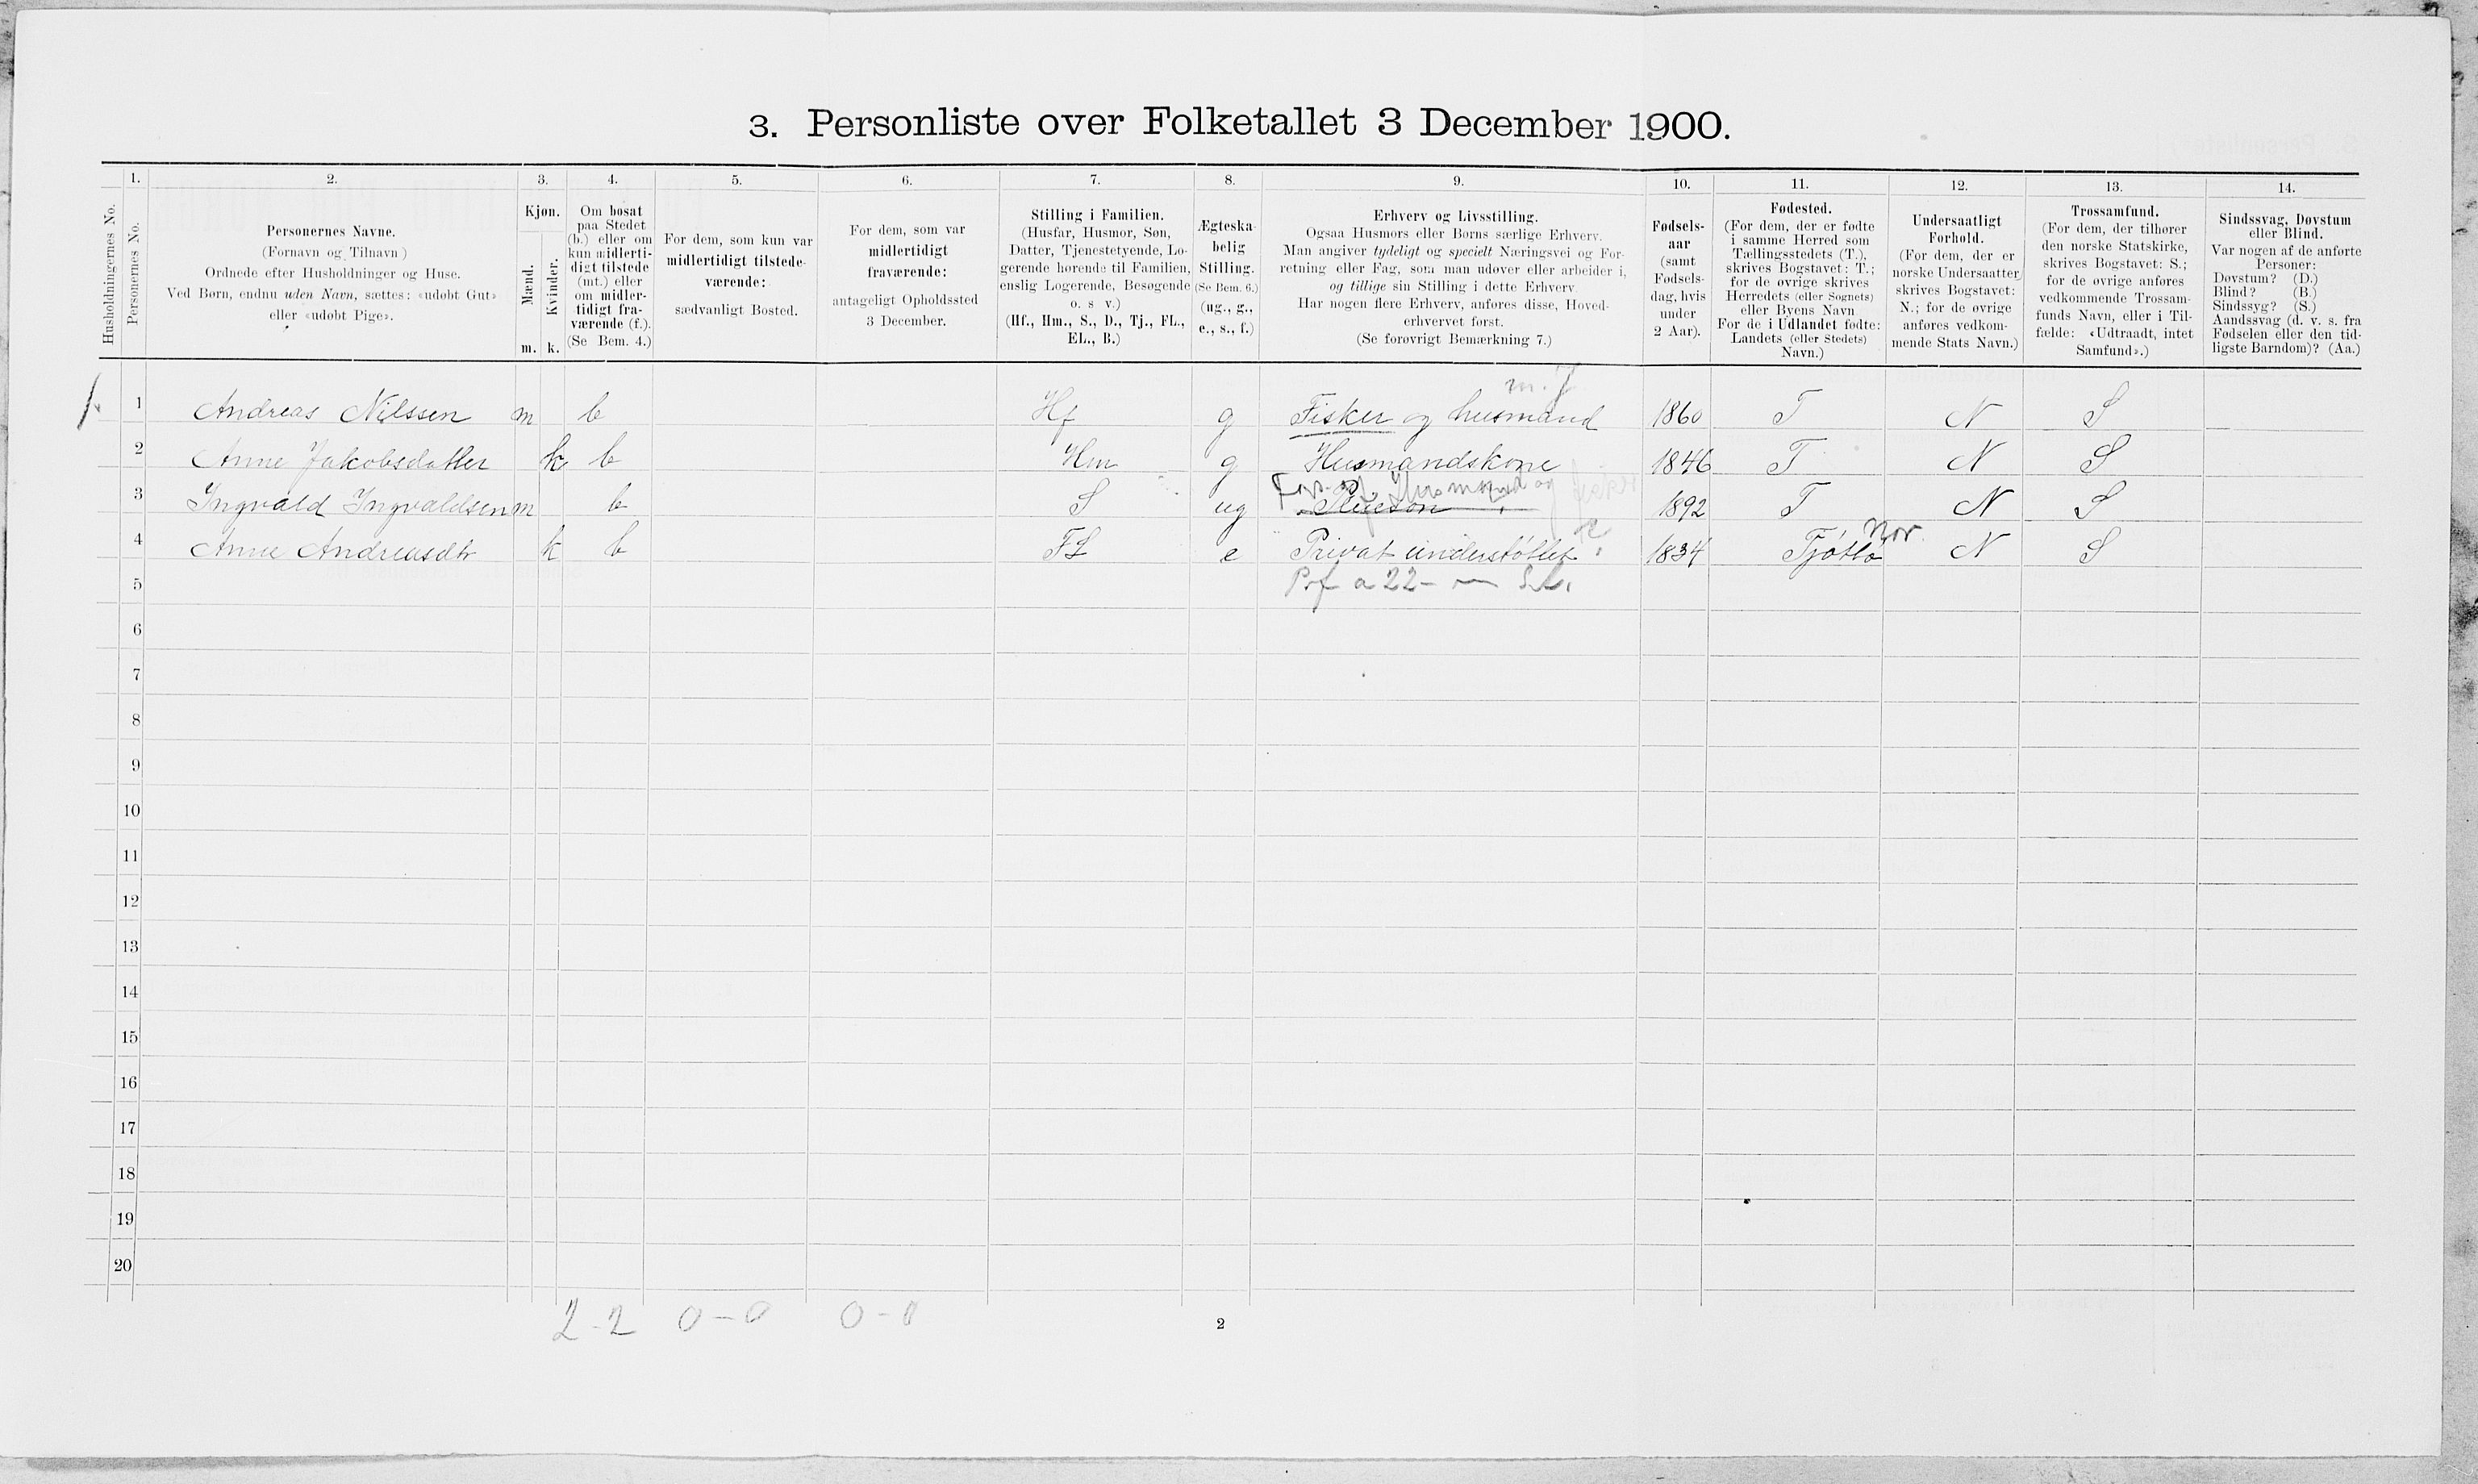 3. Personliste over Folketallet 3 December 1900.
1. 2. 3. 4. 5. 6. 7. 8. 9. 10. 11. 12. 13. 14.
Husholdningernes No.
Personernes No.
Personernes Navne.
(Fornavn og Tilnavn)
Ordnede efter Husholdninger og Huse.
Ved Børn, endnu uden Navn, sættes: «udøbt Gut»
eller «udøbt Pige».
Kjøn.
Mænd.
Kvinder.
m. k.
Om bosat
paa Stedet
(b.) eller om
kun midlerti-
digt tilstede
(mt.) eller
om midler-
tidigt fra-
værende (f.).
(Se Bem. 4.)
For dem, som kun var
midlertidigt tilstede-
værende:
sædvanligt Bosted.
For dem, som var
midlertidigt
fraværende:
antageligt Opholdssted
3 December.
Stilling i Familien.
(Husfar, Husmor, Søn,
Datter, Tjenestetyende, Lo-
gerende hørende til Familien,
enslig Logerende, Besøgende
o. s v.)
(Hf., Hm., S., D., Tj., FL.,
EL., B.)
Ægteska-
belig
Stilling.
(Se Bem. 6.)
(ug., g.,
e., s., f.)
Erhverv og Livsstilling.
Ogsaa Husmors eller Børns særlige Erhverv.
Man angiver tydeligt og specielt Næringsvei og For-
retning eller Fag, som man udøver eller arbeider i,
og tillige sin Stilling i dette Erhverv.
Har nogen flere Erhverv, anføres disse, Hoved-
erhvervet først.
(Se forøvrigt Bemærkning 7.)
Fødsels-
aar
(samt
Fødsels-
dag, hvis
under
2 Aar).
Fødested.
(For dem, der er fødte
i samme Herred som
Tællingsstedets (T.),
skrives Bogstavet: T.;
for de øvrige skrives
Herredets (eller Sognets)
eller Byens Navn
For de i Udlandet fødte:
Landets (eller Stedets)
Navn.)
Undersaatligt
Forhold.
(For dem, der er
norske Undersaatter
skrives Bogstavet:
N.; for de øvrige
anføres vedkom-
mende Stats Navn.)
Trossamfund.
(For dem, der tilhører
den norske Statskirke,
skrives Bogstavet: S.;
for de øvrige anføres
vedkommende Trossam-
funds Navn, eller i Til-
fælde: «Udtraadt, intet
Samfund».)
Sindssvag, Døvstum
eller Blind.
Var nogen af de anførte
Personer:
Døvstum? (D.)
Blind? (B.)
Sindssyg? (S.)
Aandssvag (d. v. s. fra
Fødselen eller den tid-
ligste Barndom)? (Aa.)
m. J
1 Andreas Nilssen m b Hf g Fisker og husmand 1860 T N S
2 Anne Jakobsdatter k b Hm g Husmandskone 1846 T N S
Husmand og
3 Ingvald Ingvaldsen m b S ug 1892 T N S
Nor.
4 Anne Andreasdtr k b FL e Privat understøttet 1834 Tjøtta N S
5
6
7
8
9
10
11
12
13
14
15
16
17
18
19
20
2-2 0-0 0-0
2